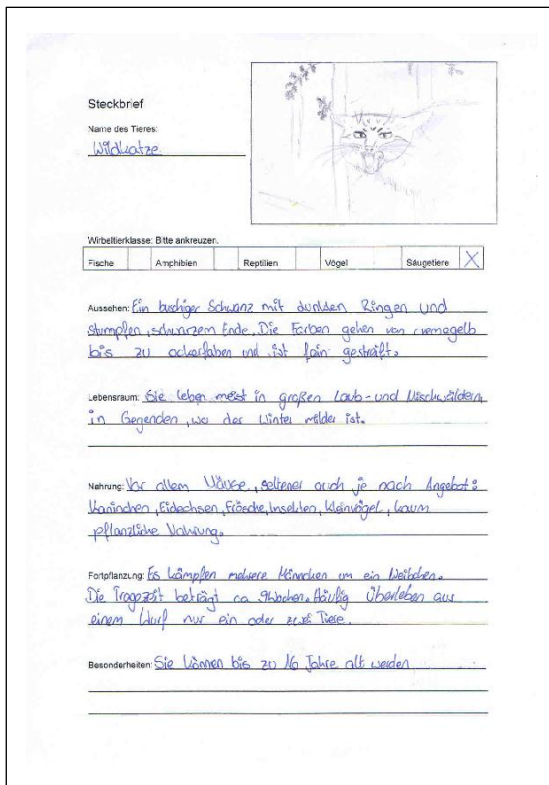 Steckbrief
Name des Tieres:
Wildkatze
Wirbeltierklasse: Bitte ankreuzen.
Fische Amphibien Reptilien Vögel Säugetiere X
Aussehen: Ein buschiger Schwanz mit dunklen Ringen und
stumpfen, schwarzem Ende. Die Farben gehen von cremegelb
bis zu ockerfaben und ist fein gestreift.
Lebensraum: Sie leben meist in großen Laub- und Mischwäldern,
in Gegenden, wo der Winter milder ist.
Nahrung: Vor allem Mäuse, seltener auch je nach Angebot:
Kaninchen, Eidechsen, Frösche, Insekten, Kleinvögel, kaum
pflanzliche Nahrung.
Fortpflanzung: Es kämpfen mehrere Männchen um ein Weibchen.
Die Tragezeit beträgt ca. 9 Wochen. Häufig überleben aus
einem Wurf nur ein oder zwei Tiere.
Besonderheiten: Sie können bis zu 16 Jahre alt werden